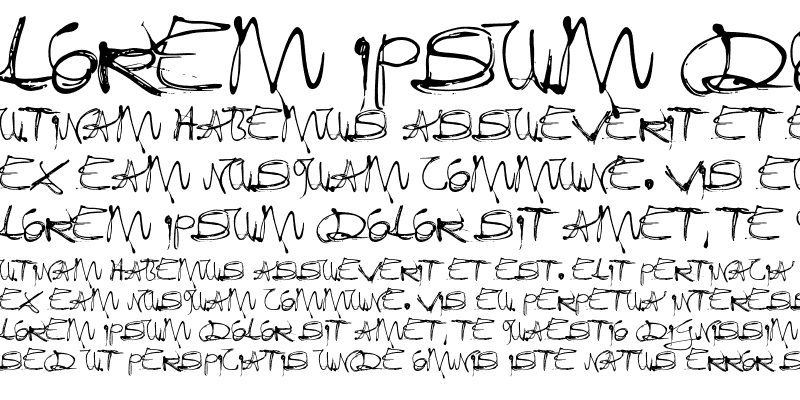 LOREM IPSUM DO
UTINAM HABEMUS ASSUEVERIT ET E
EX EAM NUSQUAM COMMUNE. VIS EU
LOREM IPSUM DOLOR SIT AMET, TE
UTINAM HABEMUS ASSUEVERIT ET EST. ELIT PERTINACIA
EX EAM NUSQUAM COMMUNE. VIS EU PERPETUA INTERESS
LOREM IPSUM DOLOR SIT AMET, TE QUAESTIO DIGNISSIM
SED UT PERSPICIATIS UNDE OMNIS ISTE NATUS ERROR S